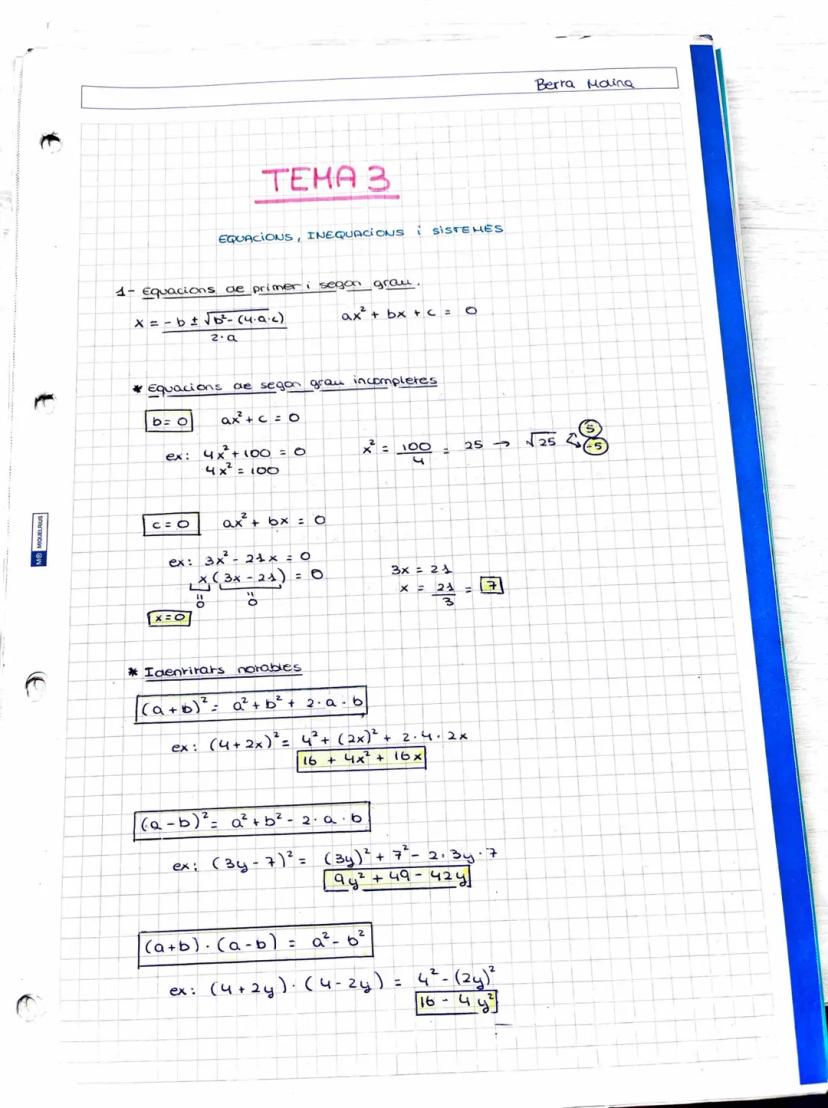 Berra Molina
TEMA 3
EQUACIONS, INEQUACIONS i SISTEMES
1- Equacions de primer i segon grau.
x = -b ± √b²-(4·a·c) / 2·a    ax² + bx + c = 0
* Equacions de segon grau incompletes
b = 0    ax² + c = 0
ex: 4x² + 100 = 0    x² = 100/4 = 25 → √25 5 -5
4x² = 100
c = 0    ax² + bx = 0
ex: 3x² - 21x = 0
x (3x - 21) = 0    3x = 21
= 0    = 0    x = 21/3 = 7
x = 0
* Identitats notables
(a+b)² = a² + b² + 2·a·b
ex: (4+2x)² = 4² + (2x)² + 2·4·2x
16 + 4x² + 16x
(a-b)² = a² + b² - 2·a·b
ex: (3y-7)² = (3y)² + 7² - 2·3y·7
9y² + 49 - 42y
(a+b)·(a-b) = a² - b²
ex: (4+2y)·(4-2y) = 4² - (2y)²
16 - 4y²
MIQUELRIUS